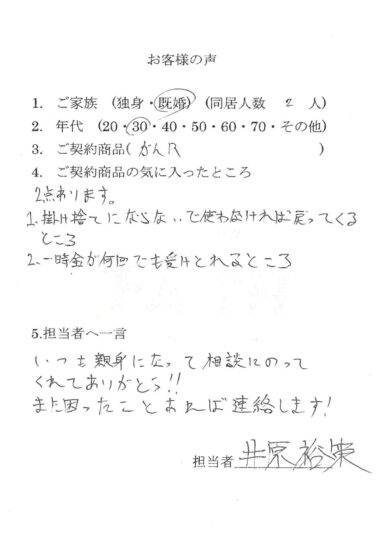 お客様の声
1. ご家族 (独身・既婚) (同居人数 2 人)
2. 年代 (20・30・40・50・60・70・その他)
3. ご契約商品( がんR )
4. ご契約商品の気に入ったところ
2点あります。
1.掛け捨てにならないで使わなければ戻ってくる
ところ
2.一時金が何回でも受けとれるところ
5.担当者へ一言
いつも親身になって相談にのって
くれてありがとう!!
また困ったことあれば連絡します!
担当者 井原裕策